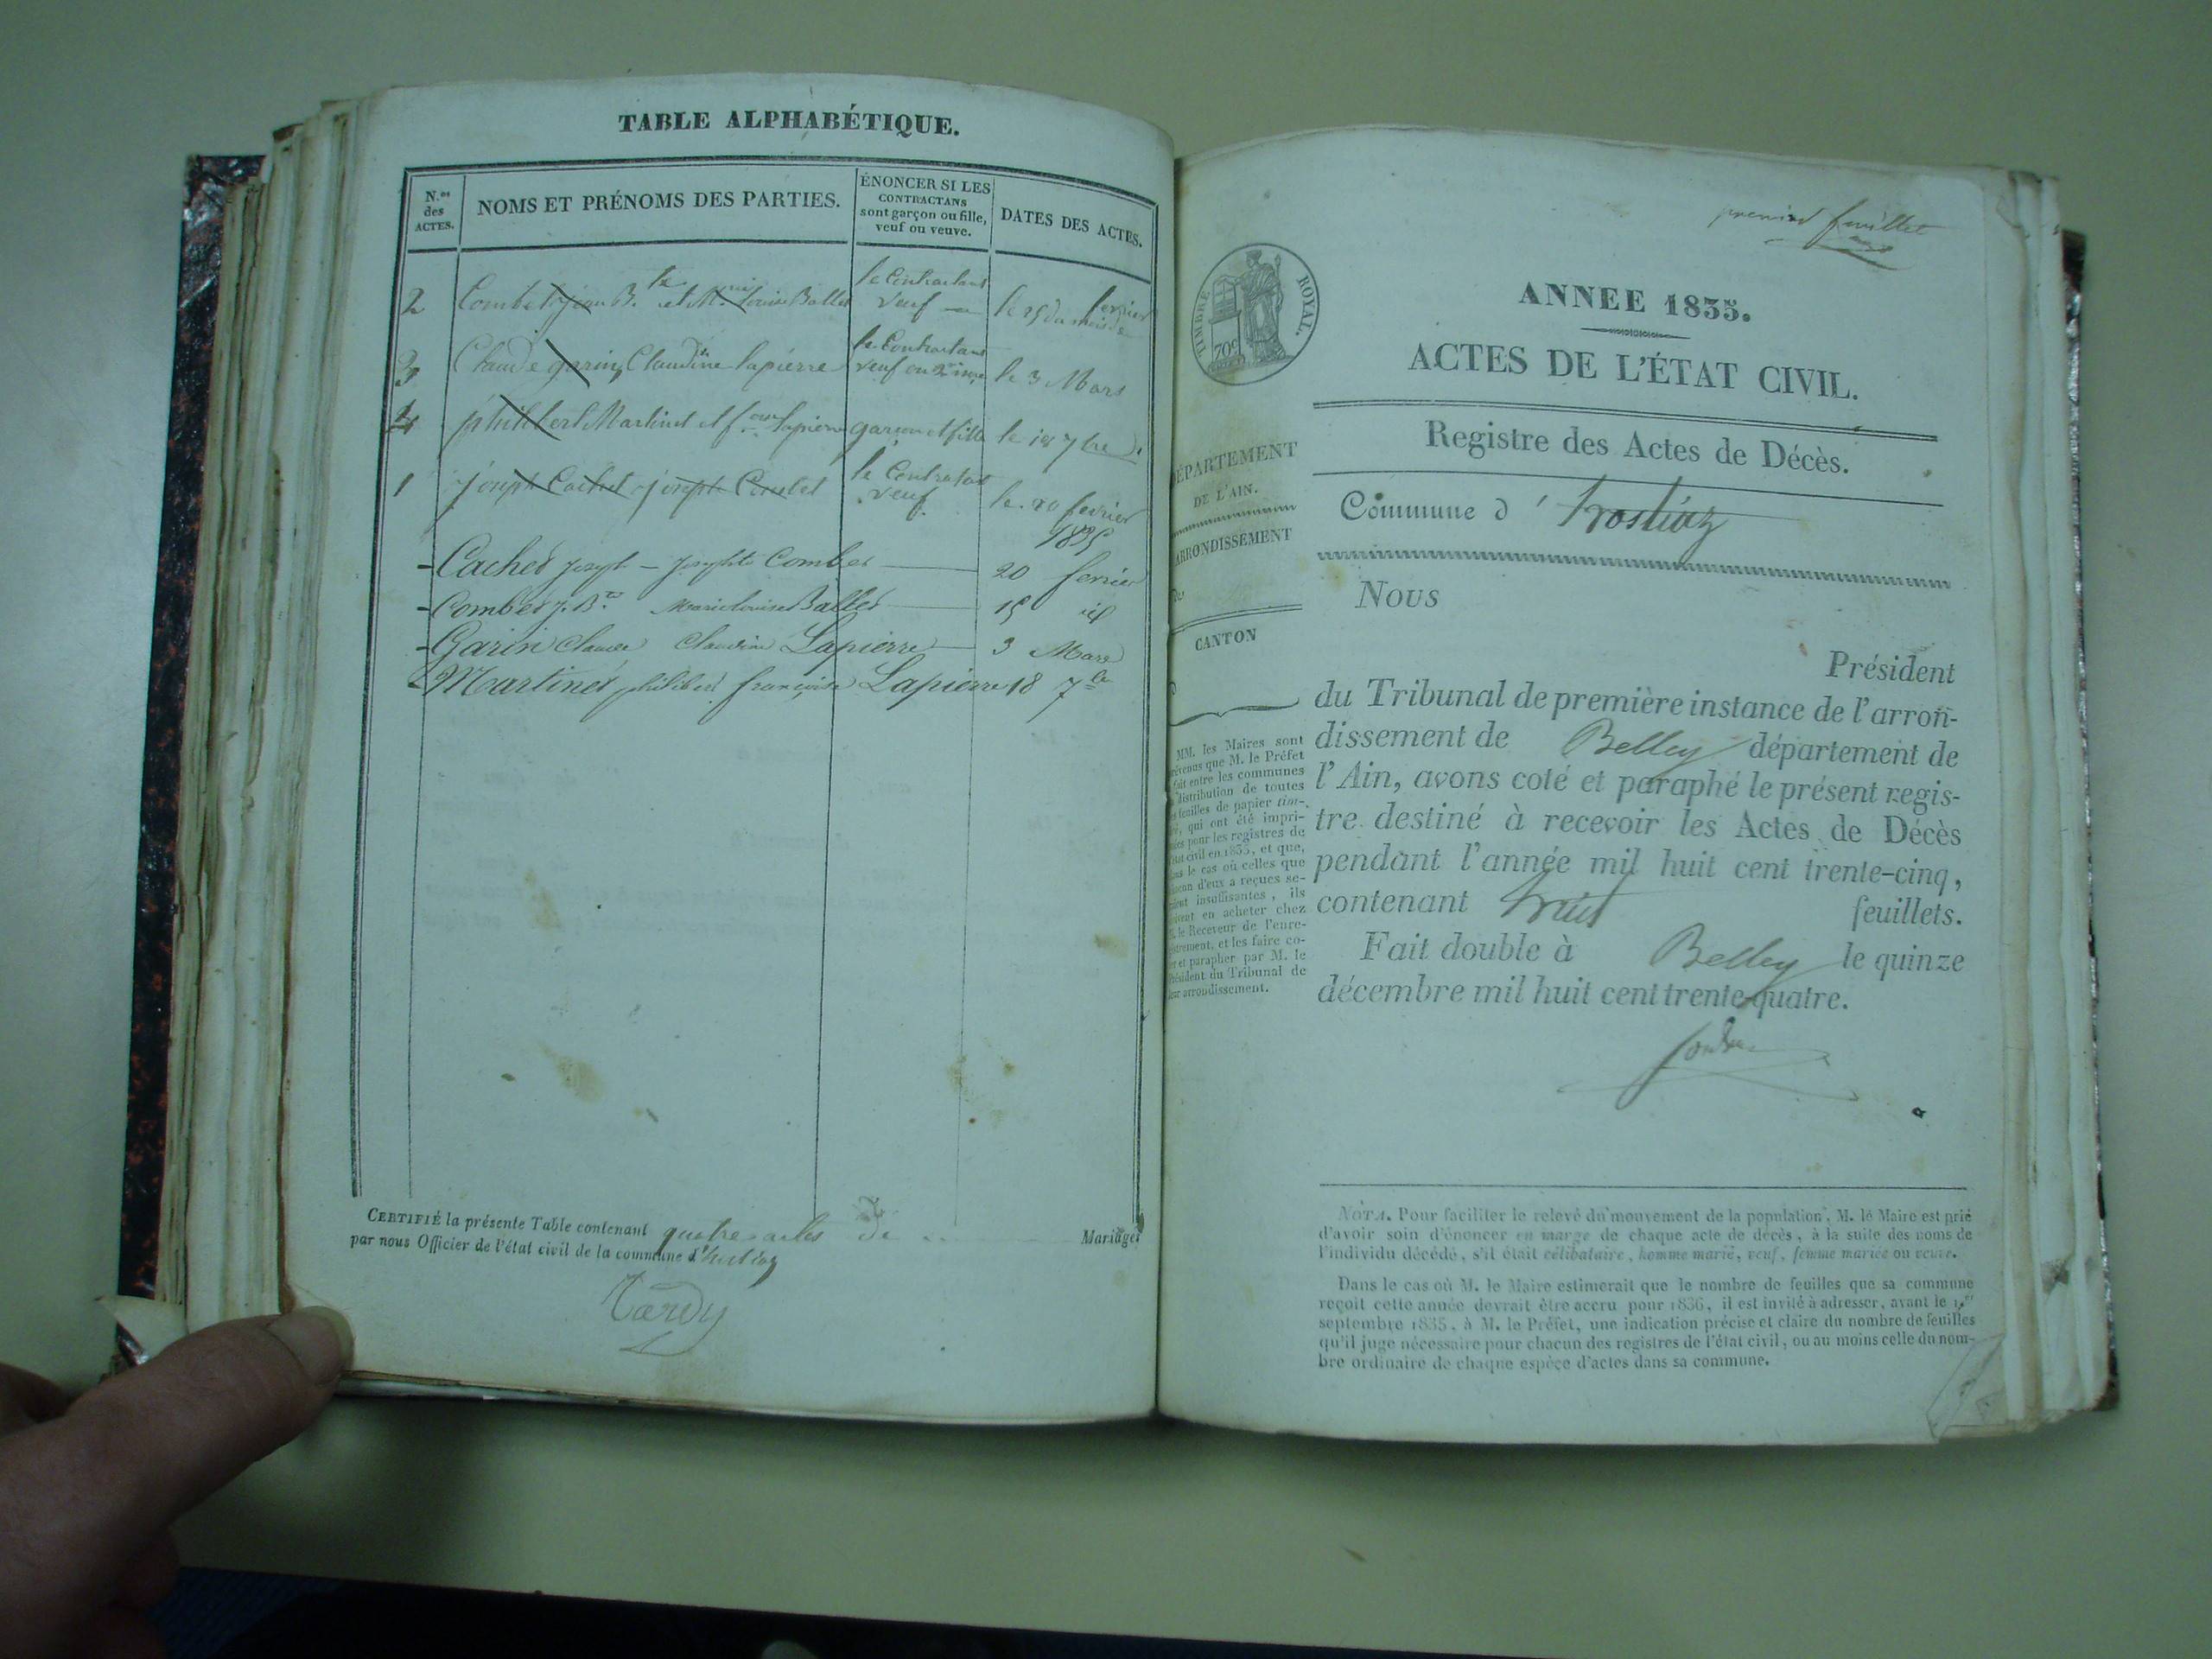 TABLE ALPHABÉTIQUE.
N.os des ACTES.
NOMS ET PRÉNOMS DES PARTIES.
ÉNONCER SI LES
CONTRACTANS
sont garçon ou fille,
veuf ou veuve.
DATES DES ACTES.
2 Combet jean B.te et M. louise Ballet le Contractant veuf le 15 du mois de fevrier
3 Claude garin, Claudine lapierre le Contractant veuf le 3 Mars
4 philibert Martinet et f. lapierre garçon et fille le 18 7bre
1 joseph Cachet joseph Combet le Contractant veuf le 20 fevrier
1835
Cachet joseph – josephte Combet 20 fevrier
Combet J. B.te marie louise Ballet 15 id
Garin claude claudine Lapierre 3 Mars
Martinet philibert françoise Lapierre 18 7bre
CERTIFIÉ la présente Table contenant quatre actes de Mariages
par nous Officier de l'état civil de la commune d'hostiaz
Tardy
premier feuillet
TIMBRE ROYAL.
70c
ANNEE 1835.
ACTES DE L'ÉTAT CIVIL.
DÉPARTEMENT
DE L'AIN.
ARRONDISSEMENT
CANTON
Registre des Actes de Décès.
Commune d'hostiaz
Nous
Président
du Tribunal de première instance de l'arron-
dissement de Belley département de
l'Ain, avons coté et paraphé le présent regis-
tre destiné à recevoir les Actes de Décès
pendant l'année mil huit cent trente-cinq,
contenant feuillets.
Fait double à Belley le quinze
décembre mil huit cent trente-quatre.
MM. les Maires sont
prévenus que M. le Préfet
fait entre les communes
distribution de toutes
feuilles de papier tim-
bré, qui ont été impri-
mées pour les registres de
l'état civil en 1835, et que,
dans le cas où celles que
chacun d'eux a reçues se-
raient insuffisantes, ils
doivent en acheter chez
M. le Receveur de l'enre-
gistrement, et les faire co-
ter et parapher par M. le
Président du Tribunal de
leur arrondissement.
NOTA. Pour faciliter le relevé du mouvement de la population, M. le Maire est prié
d'avoir soin d'énoncer en marge de chaque acte de décès, à la suite des noms de
l'individu décédé, s'il était célibataire, homme marié, veuf, femme mariée ou veuve.
Dans le cas où M. le Maire estimerait que le nombre de feuilles que sa commune
reçoit cette année devrait être accru pour 1836, il est invité à adresser, avant le 1.er
septembre 1835, à M. le Préfet, une indication précise et claire du nombre de feuilles
qu'il juge nécessaire pour chacun des registres de l'état civil, ou au moins celle du nom-
bre ordinaire de chaque espèce d'actes dans sa commune.